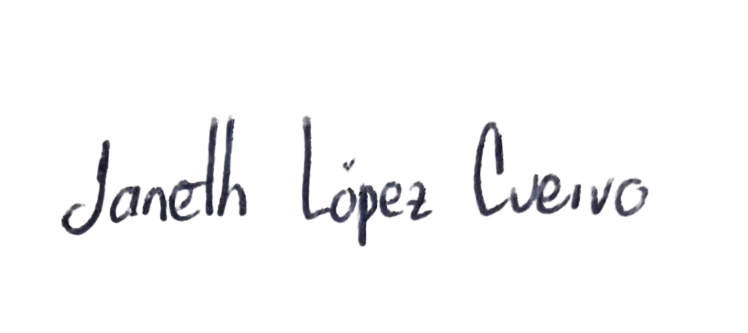 Janeth López Cuervo